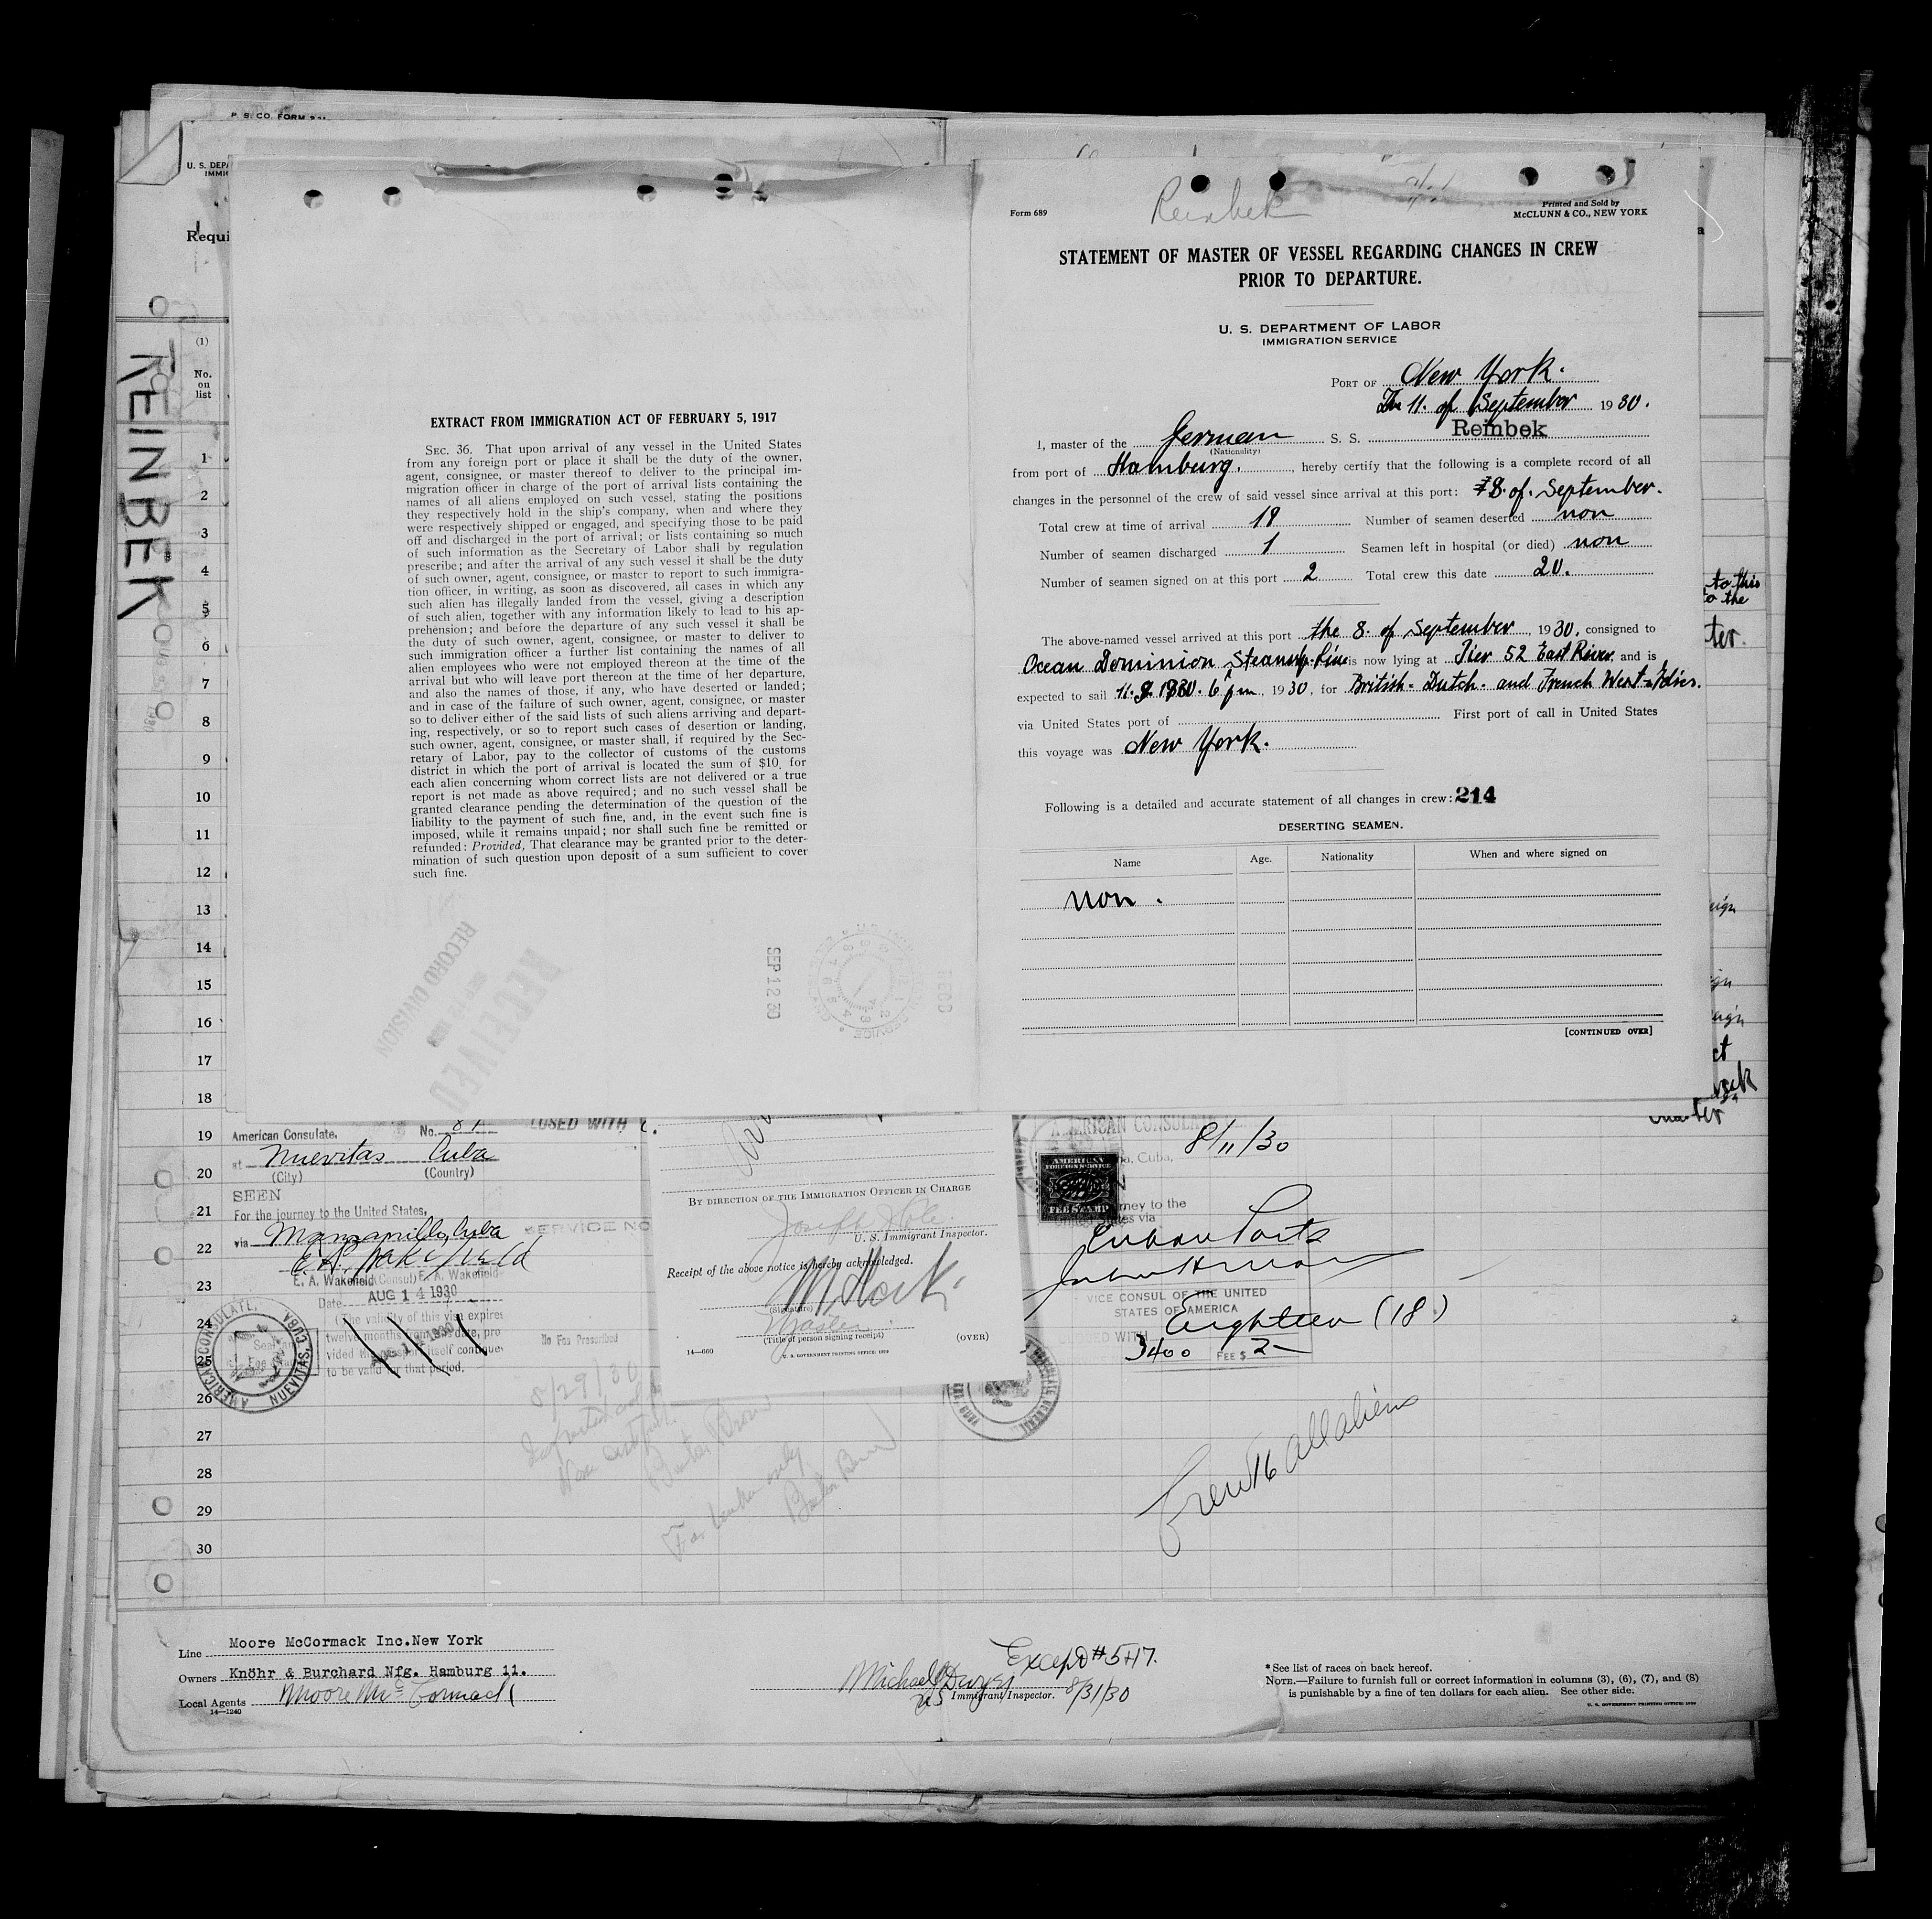 P. S. CO. FORM
U. S. DEPA
IMMIG
Requi
REINBEK
(1)
No.
on
list
1
2
3
4
5
6
7
8
9
10
11
12
13
14
15
16
17
18
19
20
21
22
23
24
25
26
27
28
29
30
EXTRACT FROM IMMIGRATION ACT OF FEBRUARY 5, 1917
SEC. 36. That upon arrival of any vessel in the United States
from any foreign port or place it shall be the duty of the owner,
agent, consignee, or master thereof to deliver to the principal im-
migration officer in charge of the port of arrival lists containing the
names of all aliens employed on such vessel, stating the positions
they respectively hold in the ship's company, when and where they
were respectively shipped or engaged, and specifying those to be paid
off and discharged in the port of arrival; or lists containing so much
of such information as the Secretary of Labor shall by regulation
prescribe; and after the arrival of any such vessel it shall be the duty
of such owner, agent, consignee, or master to report to such immigra-
tion officer, in writing, as soon as discovered, all cases in which any
such alien has illegally landed from the vessel, giving a description
of such alien, together with any information likely to lead to his ap-
prehension; and before the departure of any such vessel it shall be
the duty of such owner, agent, consignee, or master to deliver to
such immigration officer a further list containing the names of all
alien employees who were not employed thereon at the time of the
arrival but who will leave port thereon at the time of her departure,
and also the names of those, if any, who have deserted or landed;
and in case of the failure of such owner, agent, consignee, or master
so to deliver either of the said lists of such aliens arriving and depart-
ing, respectively, or so to report such cases of desertion or landing,
such owner, agent, consignee, or master shall, if required by the Sec-
retary of Labor, pay to the collector of customs of the customs
district in which the port of arrival is located the sum of $10. for
each alien concerning whom correct lists are not delivered or a true
report is not made as above required; and no such vessel shall be
granted clearance pending the determination of the question of the
liability to the payment of such fine, and, in the event such fine is
imposed, while it remains unpaid; nor shall such fine be remitted or
refunded: Provided, That clearance may be granted prior to the deter-
mination of such question upon deposit of a sum sufficient to cover
such fine.
RECEIVED
RECORD DIVISION
SEP 12 30
Form 689
Reinbek
Printed and Sold by
McCLUNN & CO., NEW YORK
STATEMENT OF MASTER OF VESSEL REGARDING CHANGES IN CREW
PRIOR TO DEPARTURE.
U. S. DEPARTMENT OF LABOR
IMMIGRATION SERVICE
PORT OF New York.
The 11. of September 1930.
I, master of the German S. S. Reinbek
(Nationality)
from port of Hamburg. , hereby certify that the following is a complete record of all
changes in the personnel of the crew of said vessel since arrival at this port: 8. of. September.
Total crew at time of arrival 19 Number of seamen deserted non
Number of seamen discharged 1 Seamen left in hospital (or died) non
Number of seamen signed on at this port 2 Total crew this date 20.
The above-named vessel arrived at this port the 8. of September , 1930, consigned to
Ocean Dominion Steamship-Line is now lying at Pier 52 East River and is
expected to sail 11. 9. 1930. 6 pm, 1930, for British- Dutch- and French West-Indies.
via United States port of First port of call in United States
this voyage was New York.
Following is a detailed and accurate statement of all changes in crew: 214
DESERTING SEAMEN.
Name Age. Nationality When and where signed on
non .
[CONTINUED OVER]
to this
to the
ter.
American Consulate, No. 81
at Nuevitas Cuba
(City) (Country)
SEEN
For the journey to the United States,
via Manzanillo, Cuba
E. A. Wakefield
E. A. Wakefield (Consul) E. A. Wakefield
Date AUG 14 1930
(The validity of this visa expires
twelve months from this date, pro
vided the passport itself continues
to be valid for that period.
No Fee Prescribed
SERVICE NO
AMERICAN CONSULATE, NUEVITAS, CUBA
BY DIRECTION OF THE IMMIGRATION OFFICER IN CHARGE
U. S. Immigrant Inspector.
Receipt of the above notice is hereby acknowledged.
(Signature)
Master
(Title of person signing receipt)
14—669
(OVER)
U. S. GOVERNMENT PRINTING OFFICE: 1929
AMERICAN CONSULA
8/11/30
na, Cuba,
AMERICAN
FOREIGN SERVICE
FEE STAMP
rney to the
United States via
Cuban Ports
VICE CONSUL OF THE UNITED
STATES OF AMERICA
Eighteen (18)
3400 FEE $ 2—
8/29/30
Crew 16 all aliens
Line Moore McCormack Inc.New York
Owners Knöhr & Burchard Nfg. Hamburg 11.
Local Agents Moore McCormack
14—1240
Except # 5+17.
Michael Dwyer
US Immigrant Inspector. 8/31/30
* See list of races on back hereof.
NOTE.—Failure to furnish full or correct information in columns (3), (6), (7), and (8)
is punishable by a fine of ten dollars for each alien. See other side.
U. S. GOVERNMENT PRINTING OFFICE: 1929